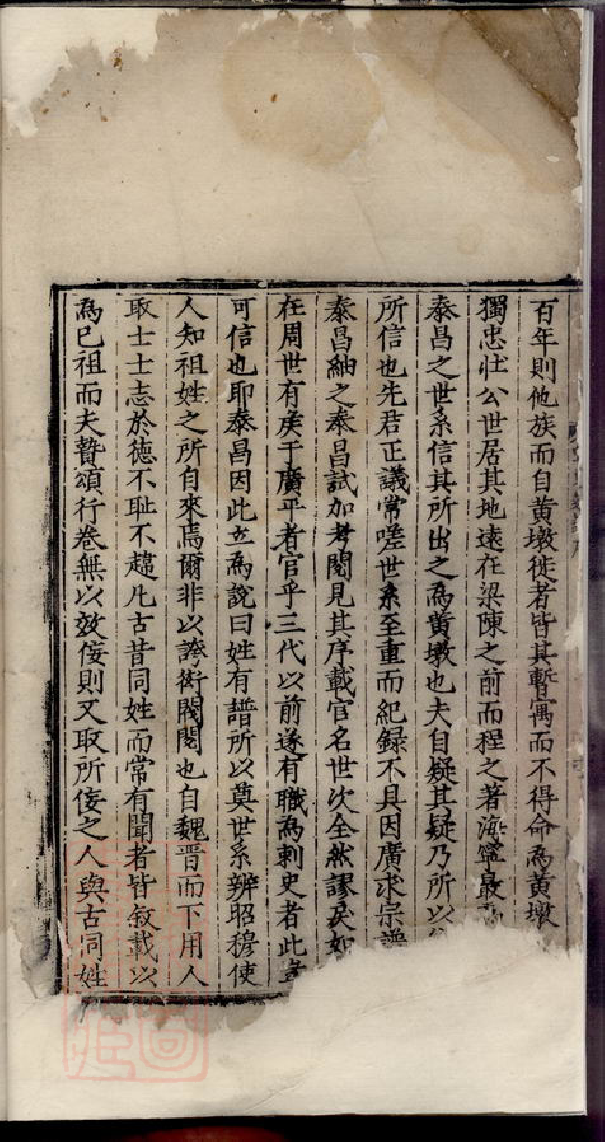 百年則他族而自黄墩徙者皆其暫寓而不得命為黄墩
獨忠壯公世居其地遠在梁陳之前而程之著海寧最
泰昌之世系信其所出之為黄墩也夫自疑其疑乃所以
所信也先君正議常嗟世系至重而紀録不具因廣求宗譜
泰昌紬之泰昌試加考閱見其序載官名世次全然謬戾如
在周世有矦于廣平者官乎三代以前遂有職為刺史者此豈
可信也耶泰昌因此立為說曰姓有譜所以奠世系辨昭穆使
人知祖姓之所自來焉爾非以誇衒閥閱也自魏晋而下用人
取士士志於德不耻不趨凢古昔同姓而常有聞者皆敘載以
為巳祖而夫贄頌行卷無以效侫則又取所侫之人與古同姓